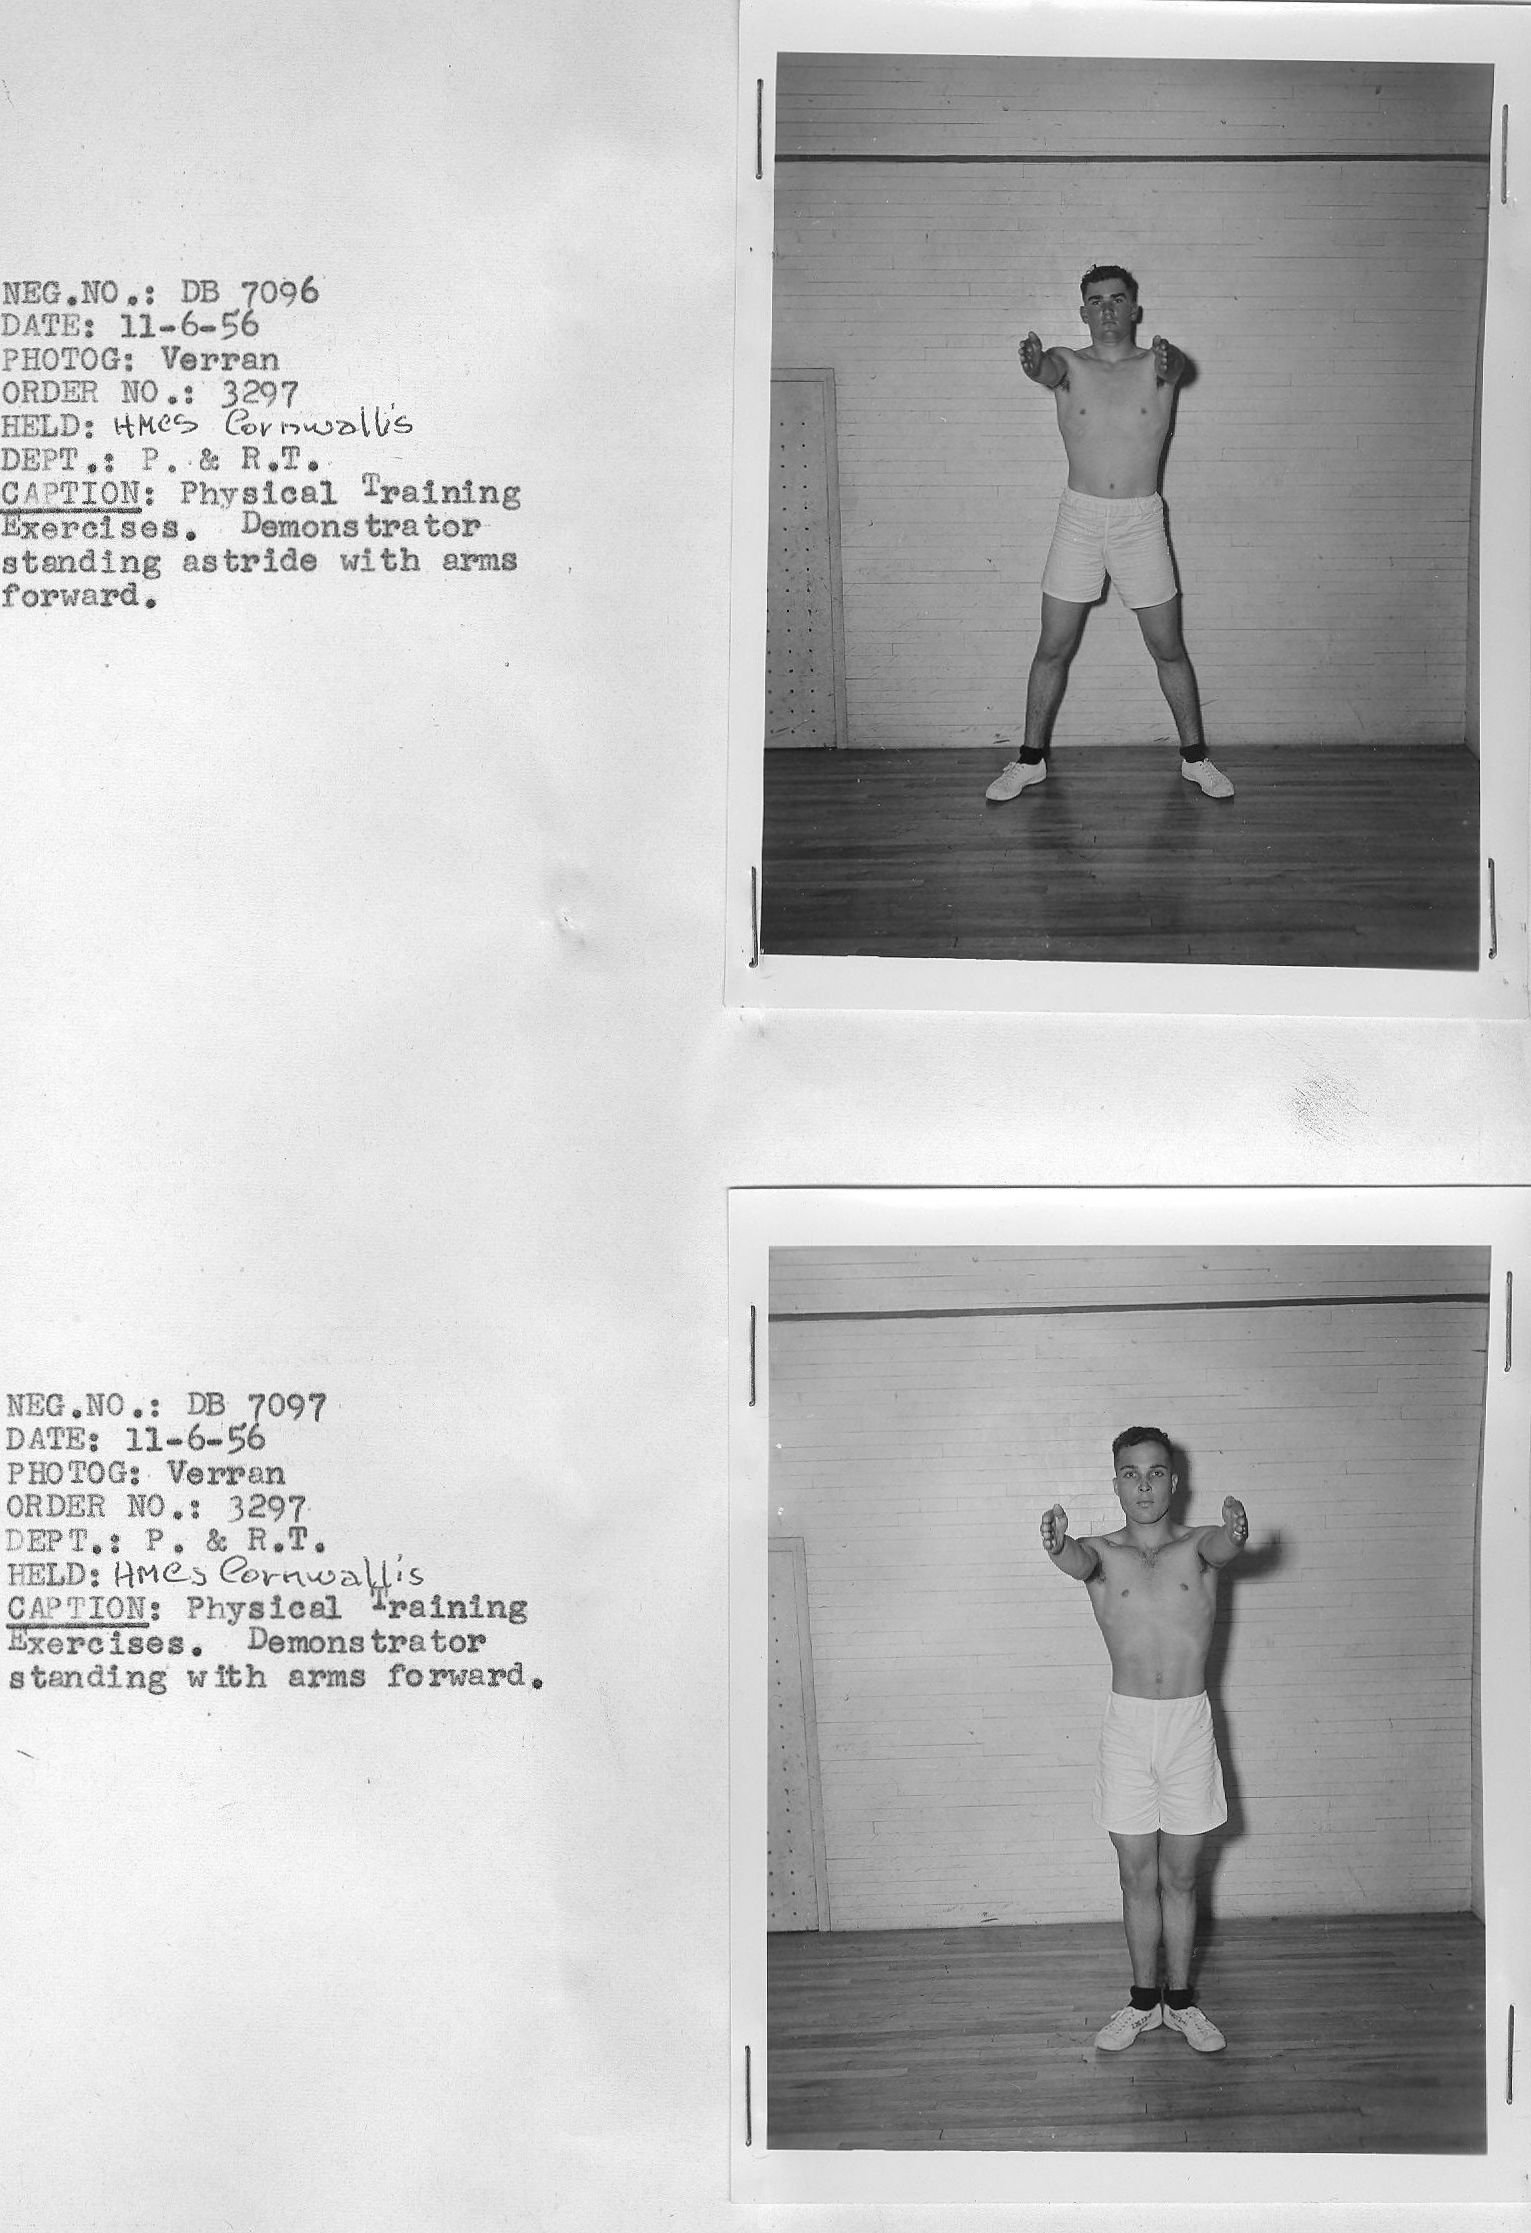 NEG.NO.: DB 7096
DATE: 11-6-56
PHOTOG: Verran
ORDER NO.: 3297
HELD: HMCS Cornwallis
DEPT.: P. & R.T.
CAPTION: Physical Training
Exercises. Demonstrator
standing astride with arms
forward.
NEG.NO.: DB 7097
DATE: 11-6-56
PHOTOG: Verran
ORDER NO.: 3297
DEPT.: P. & R.T.
HELD: HMCS Cornwallis
CAPTION: Physical Training
Exercises. Demonstrator
standing with arms forward.